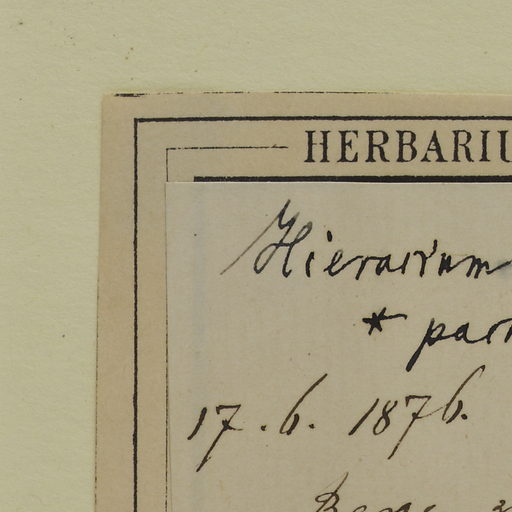 HERBARIU
Hieracium
* par
17.6.1876.